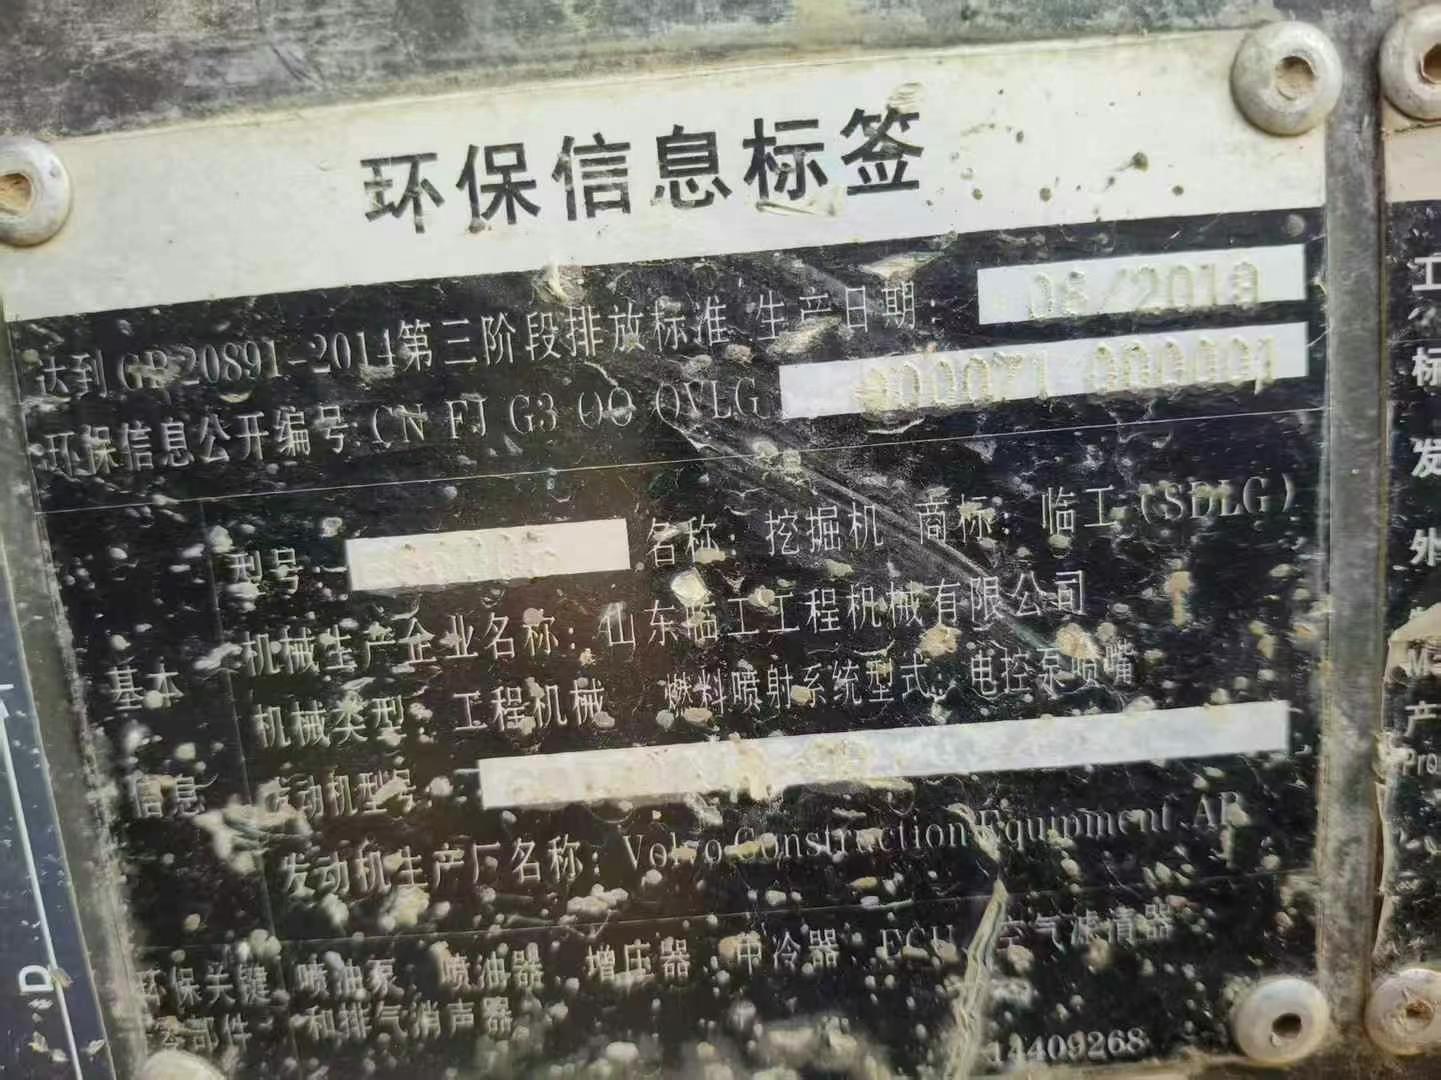 环保信息标签
达到GB 20891-2014第三阶段排放标准 生产日期: 06/2019
环保信息公开编号 CN FJ G3 00 0VLG 000071 000001
型号: 名称: 挖掘机 商标: 临工(SDLG)
机械生产企业名称: 山东临工工程机械有限公司
基本
机械类型: 工程机械 燃料喷射系统型式: 电控泵喷嘴
信息
发动机型号:
发动机生产厂名称: Volvo Construction Equipment AB
环保关键 喷油泵 喷油器 增压器 中冷器 ECU 空气滤清器
零部件 和排气消声器
14409268
工
标
发
外
产
Pro
D